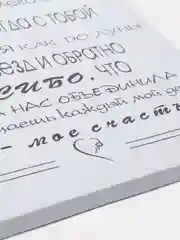 ГДА О ТОБОЙ
Я КАК ДО ЛУНЫ
ЕЗД И ОБРАТНО
СИБО, ЧТО
НАС ОБЪЕДИНИЛА
лаешь каждый мой де
- мое счасть